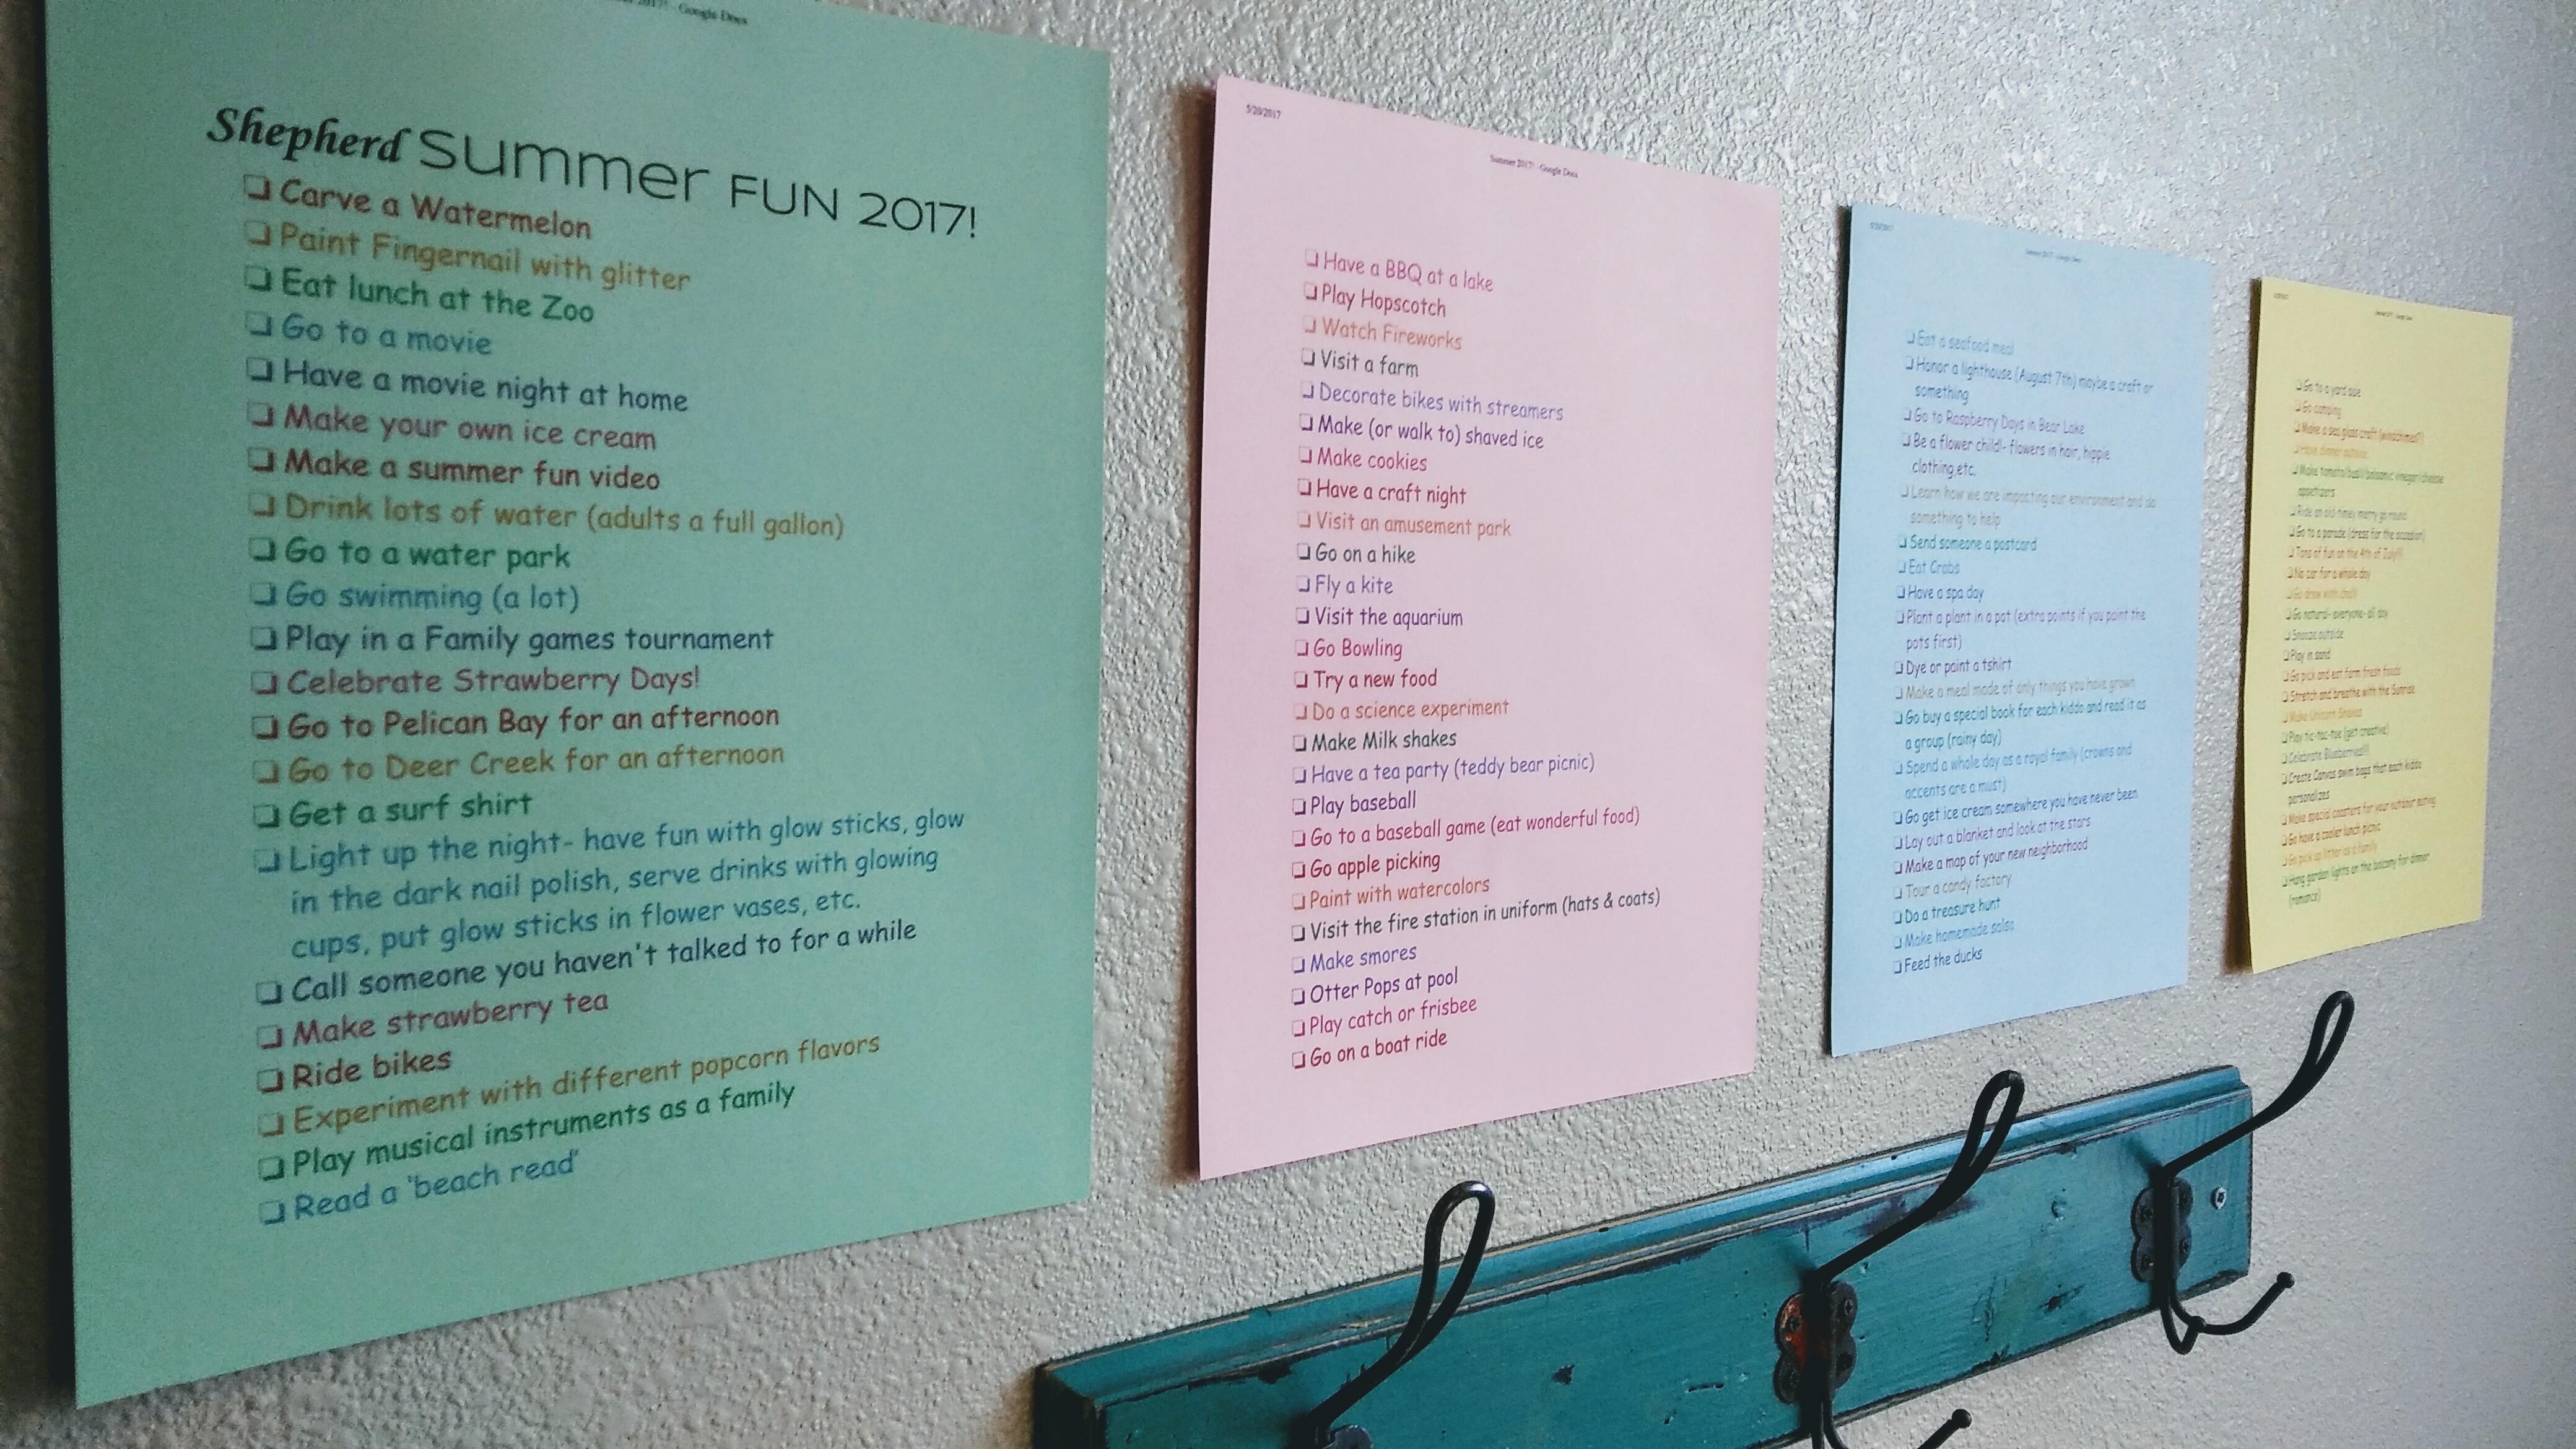 2017! - Google Docs
Shepherd Summer FUN 2017!
❏ Carve a Watermelon
❏ Paint Fingernail with glitter
❏ Eat lunch at the Zoo
❏ Go to a movie
❏ Have a movie night at home
❏ Make your own ice cream
❏ Make a summer fun video
❏ Drink lots of water (adults a full gallon)
❏ Go to a water park
❏ Go swimming (a lot)
❏ Play in a Family games tournament
❏ Celebrate Strawberry Days!
❏ Go to Pelican Bay for an afternoon
❏ Go to Deer Creek for an afternoon
❏ Get a surf shirt
❏ Light up the night- have fun with glow sticks, glow
in the dark nail polish, serve drinks with glowing
cups, put glow sticks in flower vases, etc.
❏ Call someone you haven't talked to for a while
❏ Make strawberry tea
❏ Ride bikes
❏ Experiment with different popcorn flavors
❏ Play musical instruments as a family
❏ Read a 'beach read'
5/20/2017
Summer 2017! - Google Docs
❏ Have a BBQ at a lake
❏ Play Hopscotch
❏ Watch Fireworks
❏ Visit a farm
❏ Decorate bikes with streamers
❏ Make (or walk to) shaved ice
❏ Make cookies
❏ Have a craft night
❏ Visit an amusement park
❏ Go on a hike
❏ Fly a kite
❏ Visit the aquarium
❏ Go Bowling
❏ Try a new food
❏ Do a science experiment
❏ Make Milk shakes
❏ Have a tea party (teddy bear picnic)
❏ Play baseball
❏ Go to a baseball game (eat wonderful food)
❏ Go apple picking
❏ Paint with watercolors
❏ Visit the fire station in uniform (hats & coats)
❏ Make smores
❏ Otter Pops at pool
❏ Play catch or frisbee
❏ Go on a boat ride
5/20/2017
Summer 2017! - Google Docs
❏ Eat a seafood meal
❏ Honor a lighthouse (August 7th) maybe a craft or
something
❏ Go to Raspberry Days in Bear Lake
❏ Be a flower child!- flowers in hair, hippie
clothing,etc.
❏ Learn how we are impacting our environment and do
something to help
❏ Send someone a postcard
❏ Eat Crabs
❏ Have a spa day
❏ Plant a plant in a pot (extra points if you paint the
pots first)
❏ Dye or paint a tshirt
❏ Make a meal made of only things you have grown
❏ Go buy a special book for each kiddo and read it as
a group (rainy day)
❏ Spend a whole day as a royal family (crowns and
accents are a must)
❏ Go get ice cream somewhere you have never been
❏ Lay out a blanket and look at the stars
❏ Make a map of your new neighborhood
❏ Tour a candy factory
❏ Do a treasure hunt
❏ Make homemade salsa
❏ Feed the ducks
❏ Go to a yard sale
❏ Go camping
❏ Make a sea glass craft (windchimes?)
❏ Have dinner outside
❏ Make tomato/basil/balsamic vinegar/cheese
appetizers
❏ Ride an old-timey merry go round
❏ Go to a parade (dress for the occasion)
❏ Tons of fun on the 4th of July!!!
❏ No car for a whole day
❏ Go draw with chalk
❏ Go natural- everyone- all day
❏ Snooze outside
❏ Play in sand
❏ Go pick and eat farm fresh foods
❏ Stretch and breathe with the Sunrise
❏ Make Unicorn Shakes
❏ Play tic-tac-toe (get creative)
❏ Celebrate Blueberries!!!
❏ Create Canvas swim bags that each kiddo
personalizes
❏ Make special coasters for your outdoor eating
❏ Go have a cooler lunch picnic
❏ Go pick up litter as a family
❏ Hang garden lights on the balcony for dinner
(romance)